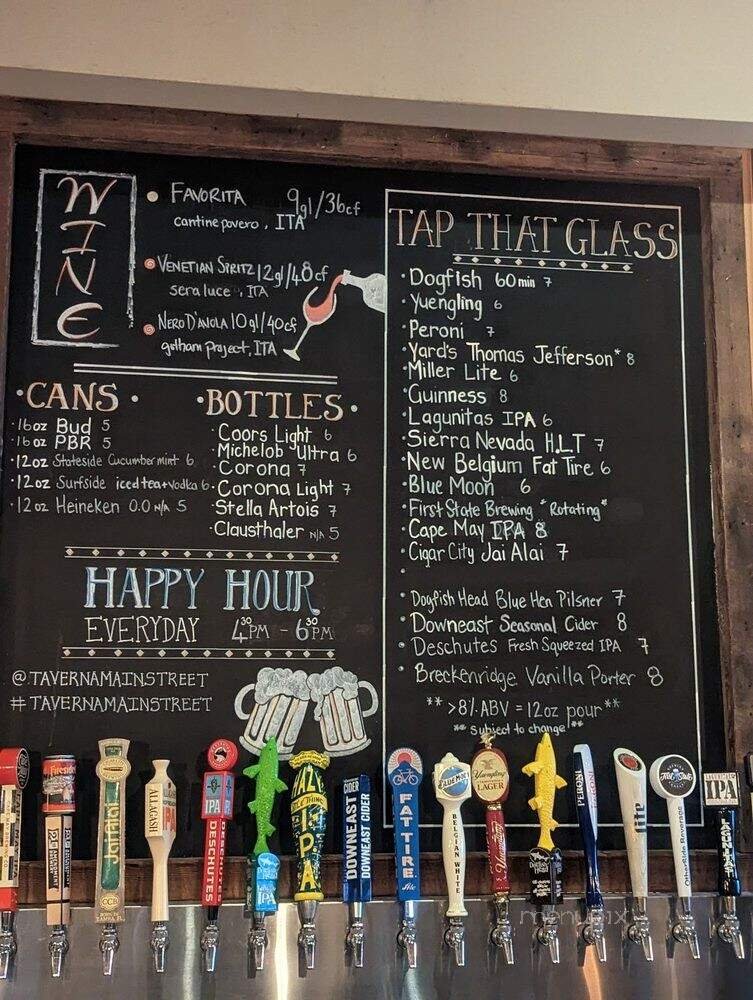 WINE
FAVORITA 9gl/36cf
cantine povero, ITA
VENETIAN SPRITZ 12gl/48cf
sera luce, ITA
NERO D'AVOLA 10gl/40cf
gotham project, ITA
·CANS·
·16oz Bud 5
·16oz PBR 5
·12oz Stateside Cucumber mint 6
·12oz Surfside iced tea+vodka 6
·12oz Heineken 0.0 N/A 5
·BOTTLES·
·Coors Light 6
Michelob Ultra 6
·Corona 7
·Corona Light 7
·Stella Artois 7
·Clausthaler N/A 5
HAPPY HOUR
EVERYDAY 4³⁰PM - 6³⁰PM
@TAVERNAMAINSTREET
#TAVERNAMAINSTREET
TAP THAT GLASS
·Dogfish 60min 7
·Yuengling 6
·Peroni 7
·Yard's Thomas Jefferson* 8
·Miller Lite 6
·Guinness 8
·Lagunitas IPA 6
·Sierra Nevada H.L.T 7
·New Belgium Fat Tire 6
·Blue Moon 6
·First State Brewing *Rotating*
·Cape May IPA 8
·Cigar City Jai Alai 7
·
·Dogfish Head Blue Hen Pilsner 7
·Downeast Seasonal Cider 8
·Deschutes Fresh Squeezed IPA 7
·Breckenridge Vanilla Porter 8
**>8% ABV = 12oz pour**
**subject to change!**
Fireside
Jai Alai
TAMPA, FL
ALLAGASH
IPA
DESCHUTES
DOGFISH HEAD
HAZY
LITTLE THING
IPA
CIDER
DOWNEAST
DOWNEAST CIDER
FAT TIRE
Ale
BLUE MOON
BELGIAN WHITE
Yuengling
LAGER
Yuengling
DOGFISH HEAD
PERONI
lite
First State
IPA
LAGUNITAS
menupix